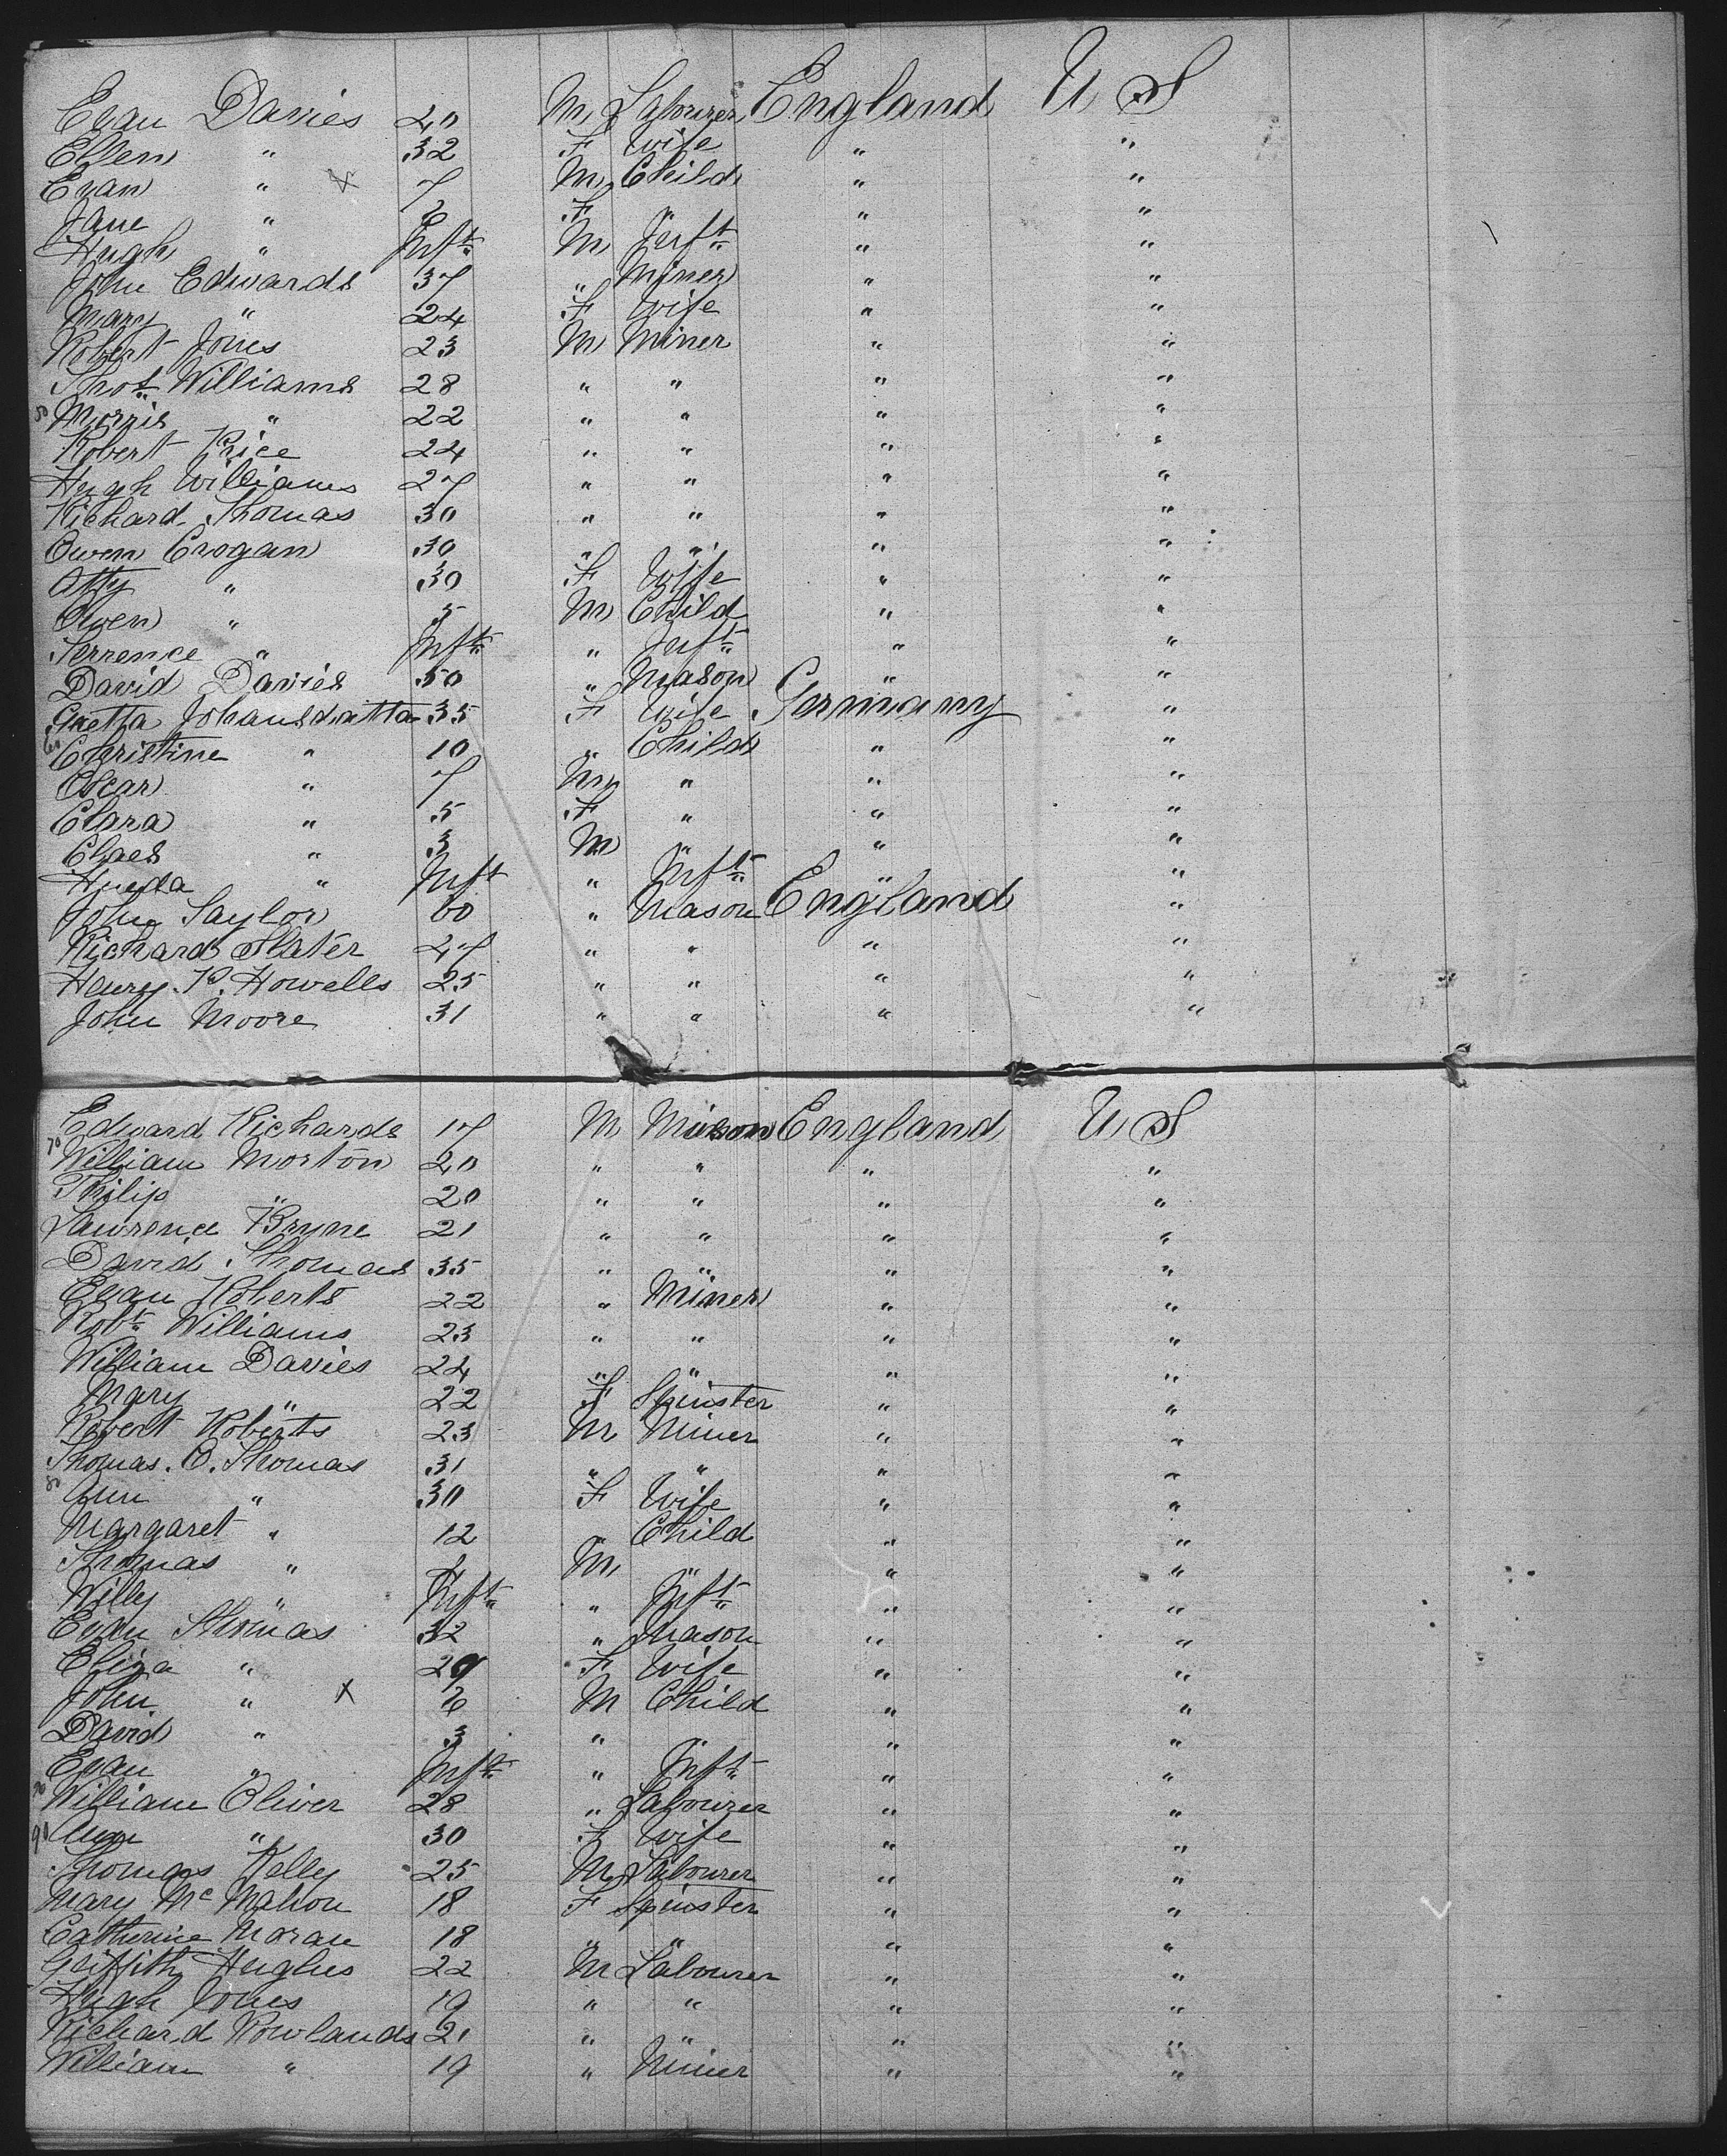 Evan Davies 40 M Labourer England U S
Ellen " 32 F Wife " "
Evan " x 7 M Child " "
Jane " 6 F " " "
Hugh " Inft M Inft " "
John Edwards 37 " Miner " "
Mary " 24 F Wife " "
Robert Jones 23 M Miner " "
Thos Williams 28 " " " "
50 Morris " 22 " " " "
Robert Price 24 " " " "
Hugh Williams 27 " " " "
Richard Thomas 30 " " " "
Owen Crogan 30 " " " "
Atty " 30 F Wife " "
Owen " 5 M Child " "
Terrence " Inft " Inft " "
David Davies 50 " Mason " "
Gretta Johansdatta 35 F Wife Germany "
60 Christine " 10 " Child " "
Oscar " 7 M " " "
Clara " 5 F " " "
Claes " 3 M " " "
" Inft " Inft " "
John Taylor 60 " Mason England "
Richard Slater 47 " " " "
Henry P. Howells 25 " " " "
John Moore 31 " " " "
Edward Richards 17 M Mason England U S
70 William Morton 20 " " " "
Philip " 20 " " " "
Lawrence Bryne 21 " " " "
David Thomas 35 " " " "
Evan Roberts 22 " Miner " "
Robt Williams 23 " " " "
William Davies 24 " " " "
Mary " 22 F Spinster " "
Robert Roberts 23 M Miner " "
Thomas. O. Thomas 31 " " " "
80 Ann " 30 F Wife " "
Margaret " 12 " Child " "
Thomas " 7 M " " "
Willy " Inft " Inft " "
Evan Thomas 32 " Mason " "
Eliza " 29 F Wife " "
John " x 6 M Child " "
David " 3 " " " "
Evan " Inft " Inft " "
William Oliver 28 " Labourer " "
90 Ann " 30 F Wife " "
Thomas Kelly 25 M Labourer " "
Mary Mc Mahon 18 F Spinster " "
Catherine Moran 18 " " " "
Griffith Hughes 22 M Labourer " "
Hugh Jones 19 " " " "
Richard Rowlands 21 " " " "
William " 19 " Miner " "